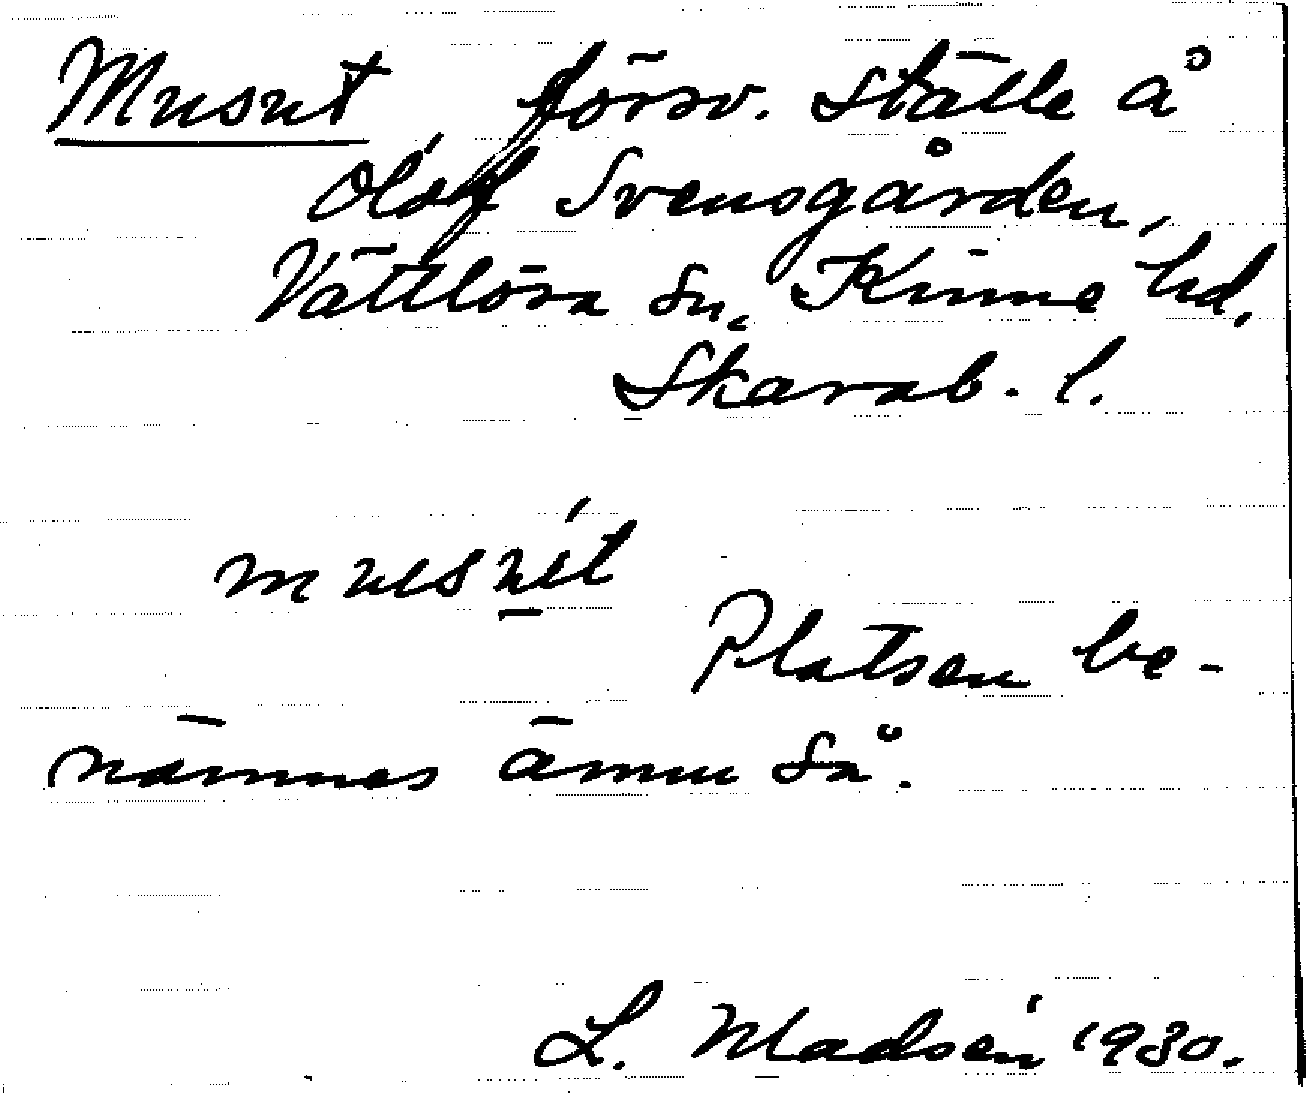 Musut försv. ställe å
Olof Svensgården,
Vättlösa sn, Kinne hd,
Skarab. l.
musút
Platsen be-
nämnes ännu så.
L. Madsén 1930.